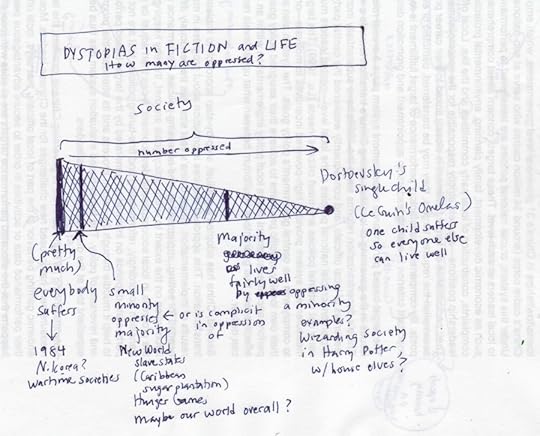 DYSTOPIAS in FICTION and LIFE
How many are oppressed?
society
number oppressed
Dostoevsky's
single child
(LeGuin's Omelas)
one child suffers
so everyone else
can live well
(pretty
much)
everybody
suffers
1984
N. Korea?
wartime societies
small
minority
oppresses
majority
New World
slave states
(Caribbean
sugar plantation)
Hunger Games
maybe our world overall?
← or is complicit
in oppression
of
majority
lives
fairly well
by oppressing
a minority
examples?
Wizarding society
in Harry Potter,
w/ house elves?